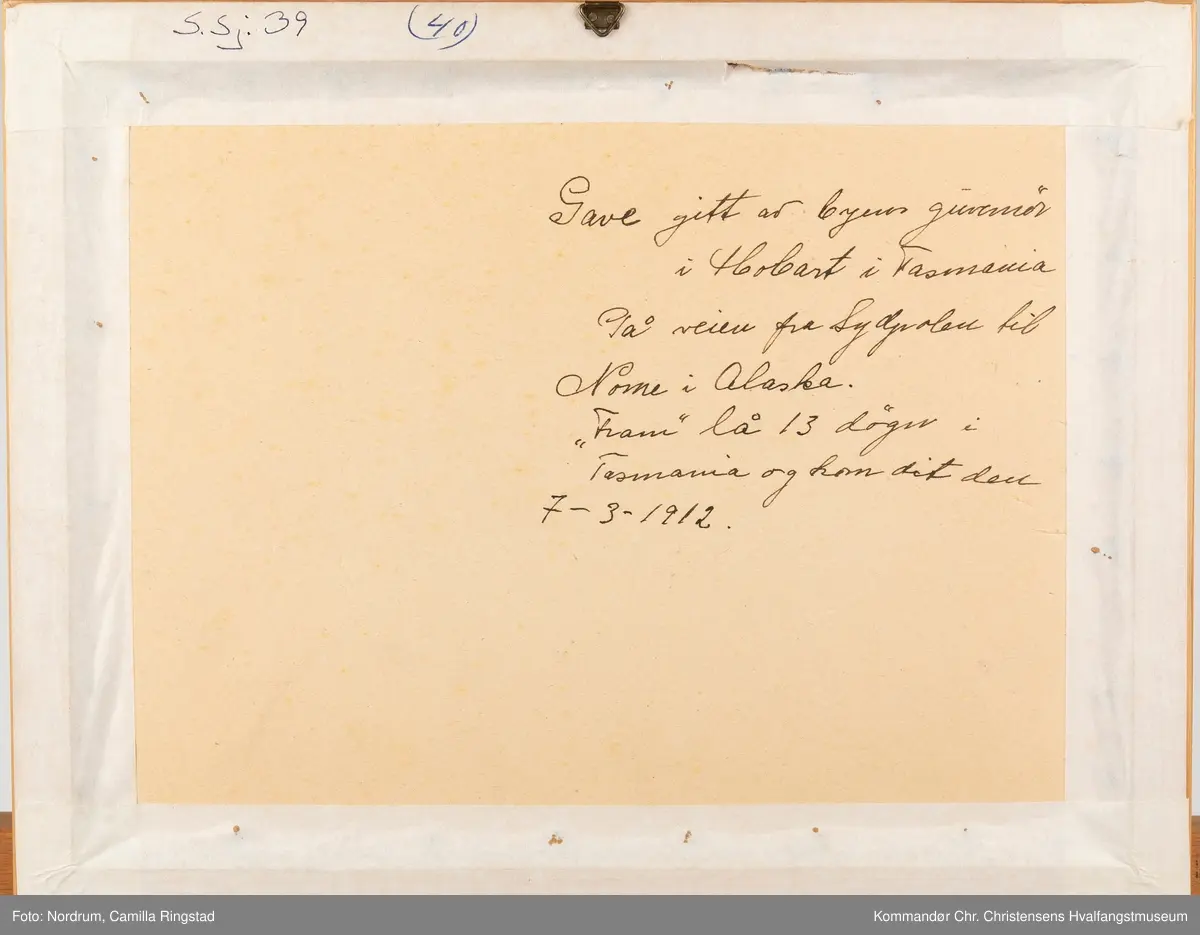 S.Sj: 39 (40)
Gave gitt av byens guvernör
i Hobart i Tasmania
På veien fra Sydpolen til
Nome i Alaska.
„Fram" lå 13 dögn i
Tasmania og kom dit den
7-3-1912.
Foto: Nordrum, Camilla Ringstad
Kommandør Chr. Christensens Hvalfangstmuseum